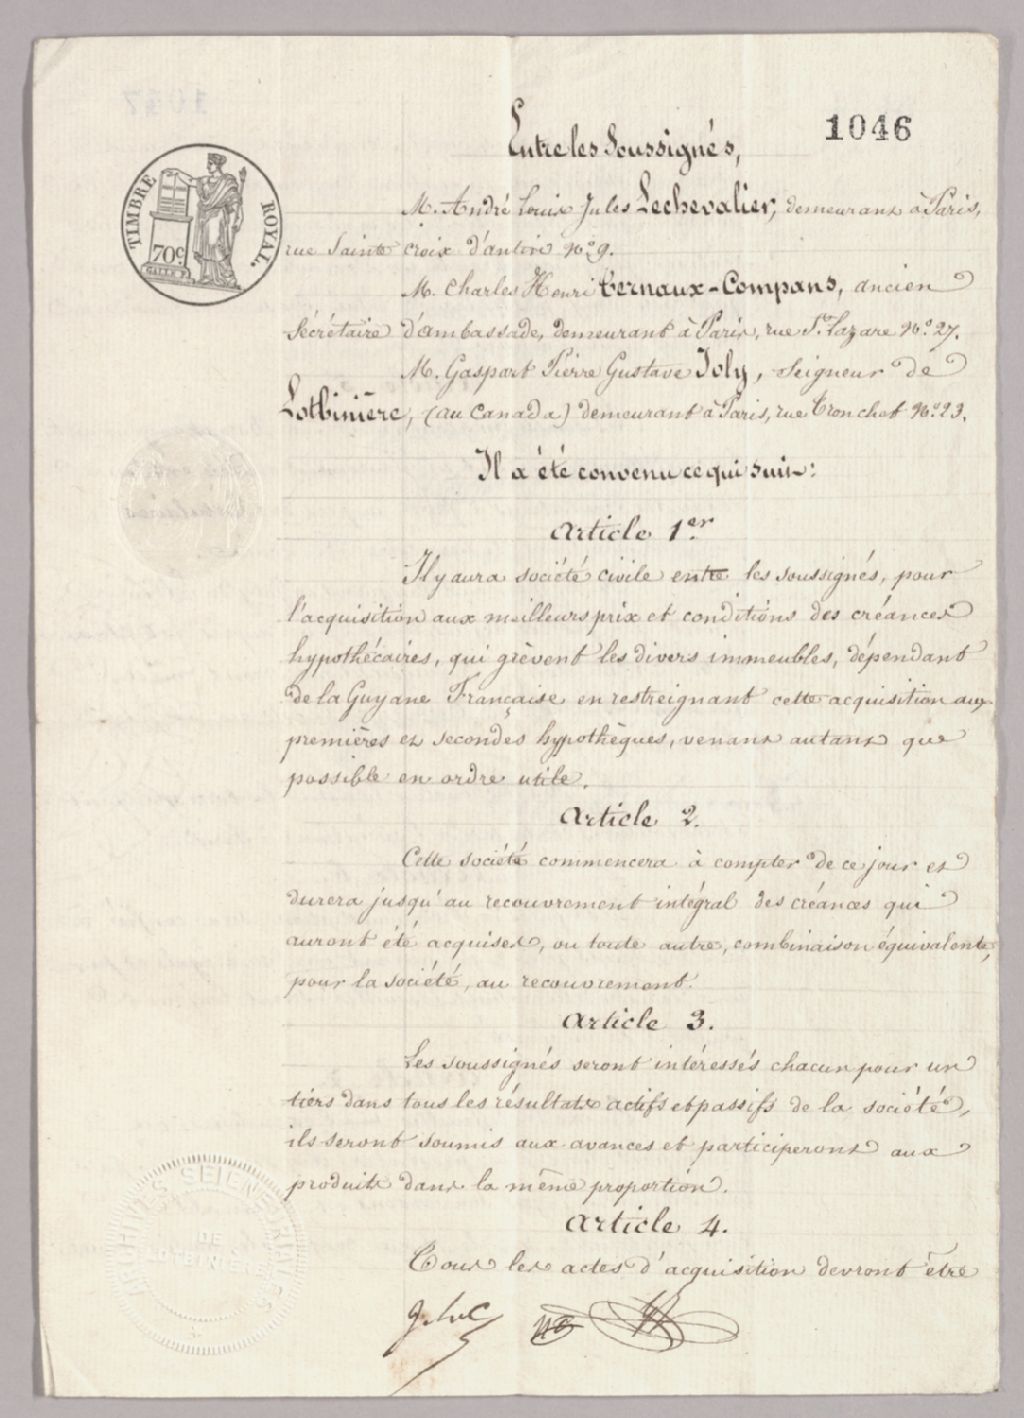 1046
TIMBRE ROYAL.
70c.
Entre les Soussignés,
M. André Louis Jules Lechevalier, demeurant à Paris,
rue Sainte croix d'antin No. 9.
M. Charles Henri Ternaux-Compans, ancien
Sécrétaire d'ambassade, demeurant à Paris, rue St. Lazare No. 27.
M. Gaspart Pierre Gustave Joly, Seigneur de
Lotbinière, (au Canada) demeurant à Paris, rue Tronchet No. 23.
Il a été convenu ce qui suit:
Article 1er
Il y aura société civile entre les soussignés, pour
l'acquisition aux meilleurs prix et conditions des créances
hypothécaires, qui grèvent les divers immeubles, dépendant
de la Guyane Française en restreignant cette acquisition aux
premières et secondes hypothèques, venant autant que
possible en ordre utile.
Article 2.
Cette société commencera à compter de ce jour et
durera jusqu'au recouvrement intégral des créances qui
auront été acquises, ou toute autre, combinaison équivalente,
pour la société, au recouvrement.
Article 3.
Les soussignés seront intéressés chacun pour un
tiers dans tous les résultats actifs et passifs de la société,
ils seront soumis aux avances et participeront aux
produits dans la même proportion.
Article 4.
Tous les actes d'acquisition devront être
ARCHIVES SEIGNEURIALES
DE
LOTBINIÈRE